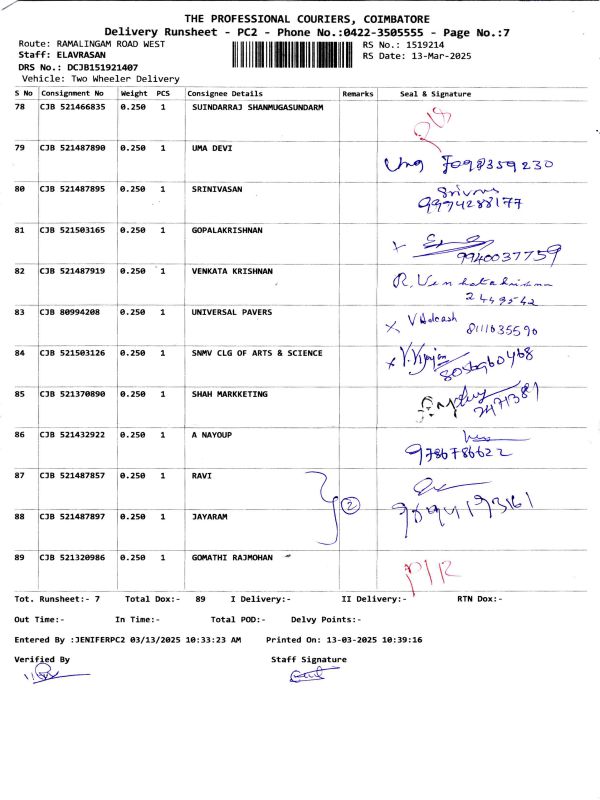 THE PROFESSIONAL COURIERS, COIMBATORE
Delivery Runsheet - PC2 - Phone No.:0422-3505555 - Page No.:7
Route: RAMALINGAM ROAD WEST RS No.: 1519214
Staff: ELAVRASAN RS Date: 13-Mar-2025
DRS No.: DCJB151921407
Vehicle: Two Wheeler Delivery
S No Consignment No Weight PCS Consignee Details Remarks Seal & Signature
78 CJB 521466835 0.250 1 SUINDARRAJ SHANMUGASUNDARM
79 CJB 521487890 0.250 1 UMA DEVI
Uma 7098359230
80 CJB 521487895 0.250 1 SRINIVASAN
9994288177
81 CJB 521503165 0.250 1 GOPALAKRISHNAN
9940037759
82 CJB 521487919 0.250 1 VENKATA KRISHNAN
R. Venkatakrishnan
2449542
83 CJB 80994208 0.250 1 UNIVERSAL PAVERS
8111035590
84 CJB 521503126 0.250 1 SNMV CLG OF ARTS & SCIENCE
V. Vijayan
8056960468
85 CJB 521370890 0.250 1 SHAH MARKKETING
2471381
86 CJB 521432922 0.250 1 A NAYOUP
9786786622
87 CJB 521487857 0.250 1 RAVI
2
88 CJB 521487897 0.250 1 JAYARAM
89 CJB 521320986 0.250 1 GOMATHI RAJMOHAN
P/R
Tot. Runsheet:- 7 Total Dox:- 89 I Delivery:- II Delivery:- RTN Dox:-
Out Time:- In Time:- Total POD:- Delvy Points:-
Entered By :JENIFERPC2 03/13/2025 10:33:23 AM Printed On: 13-03-2025 10:39:16
Verified By Staff Signature